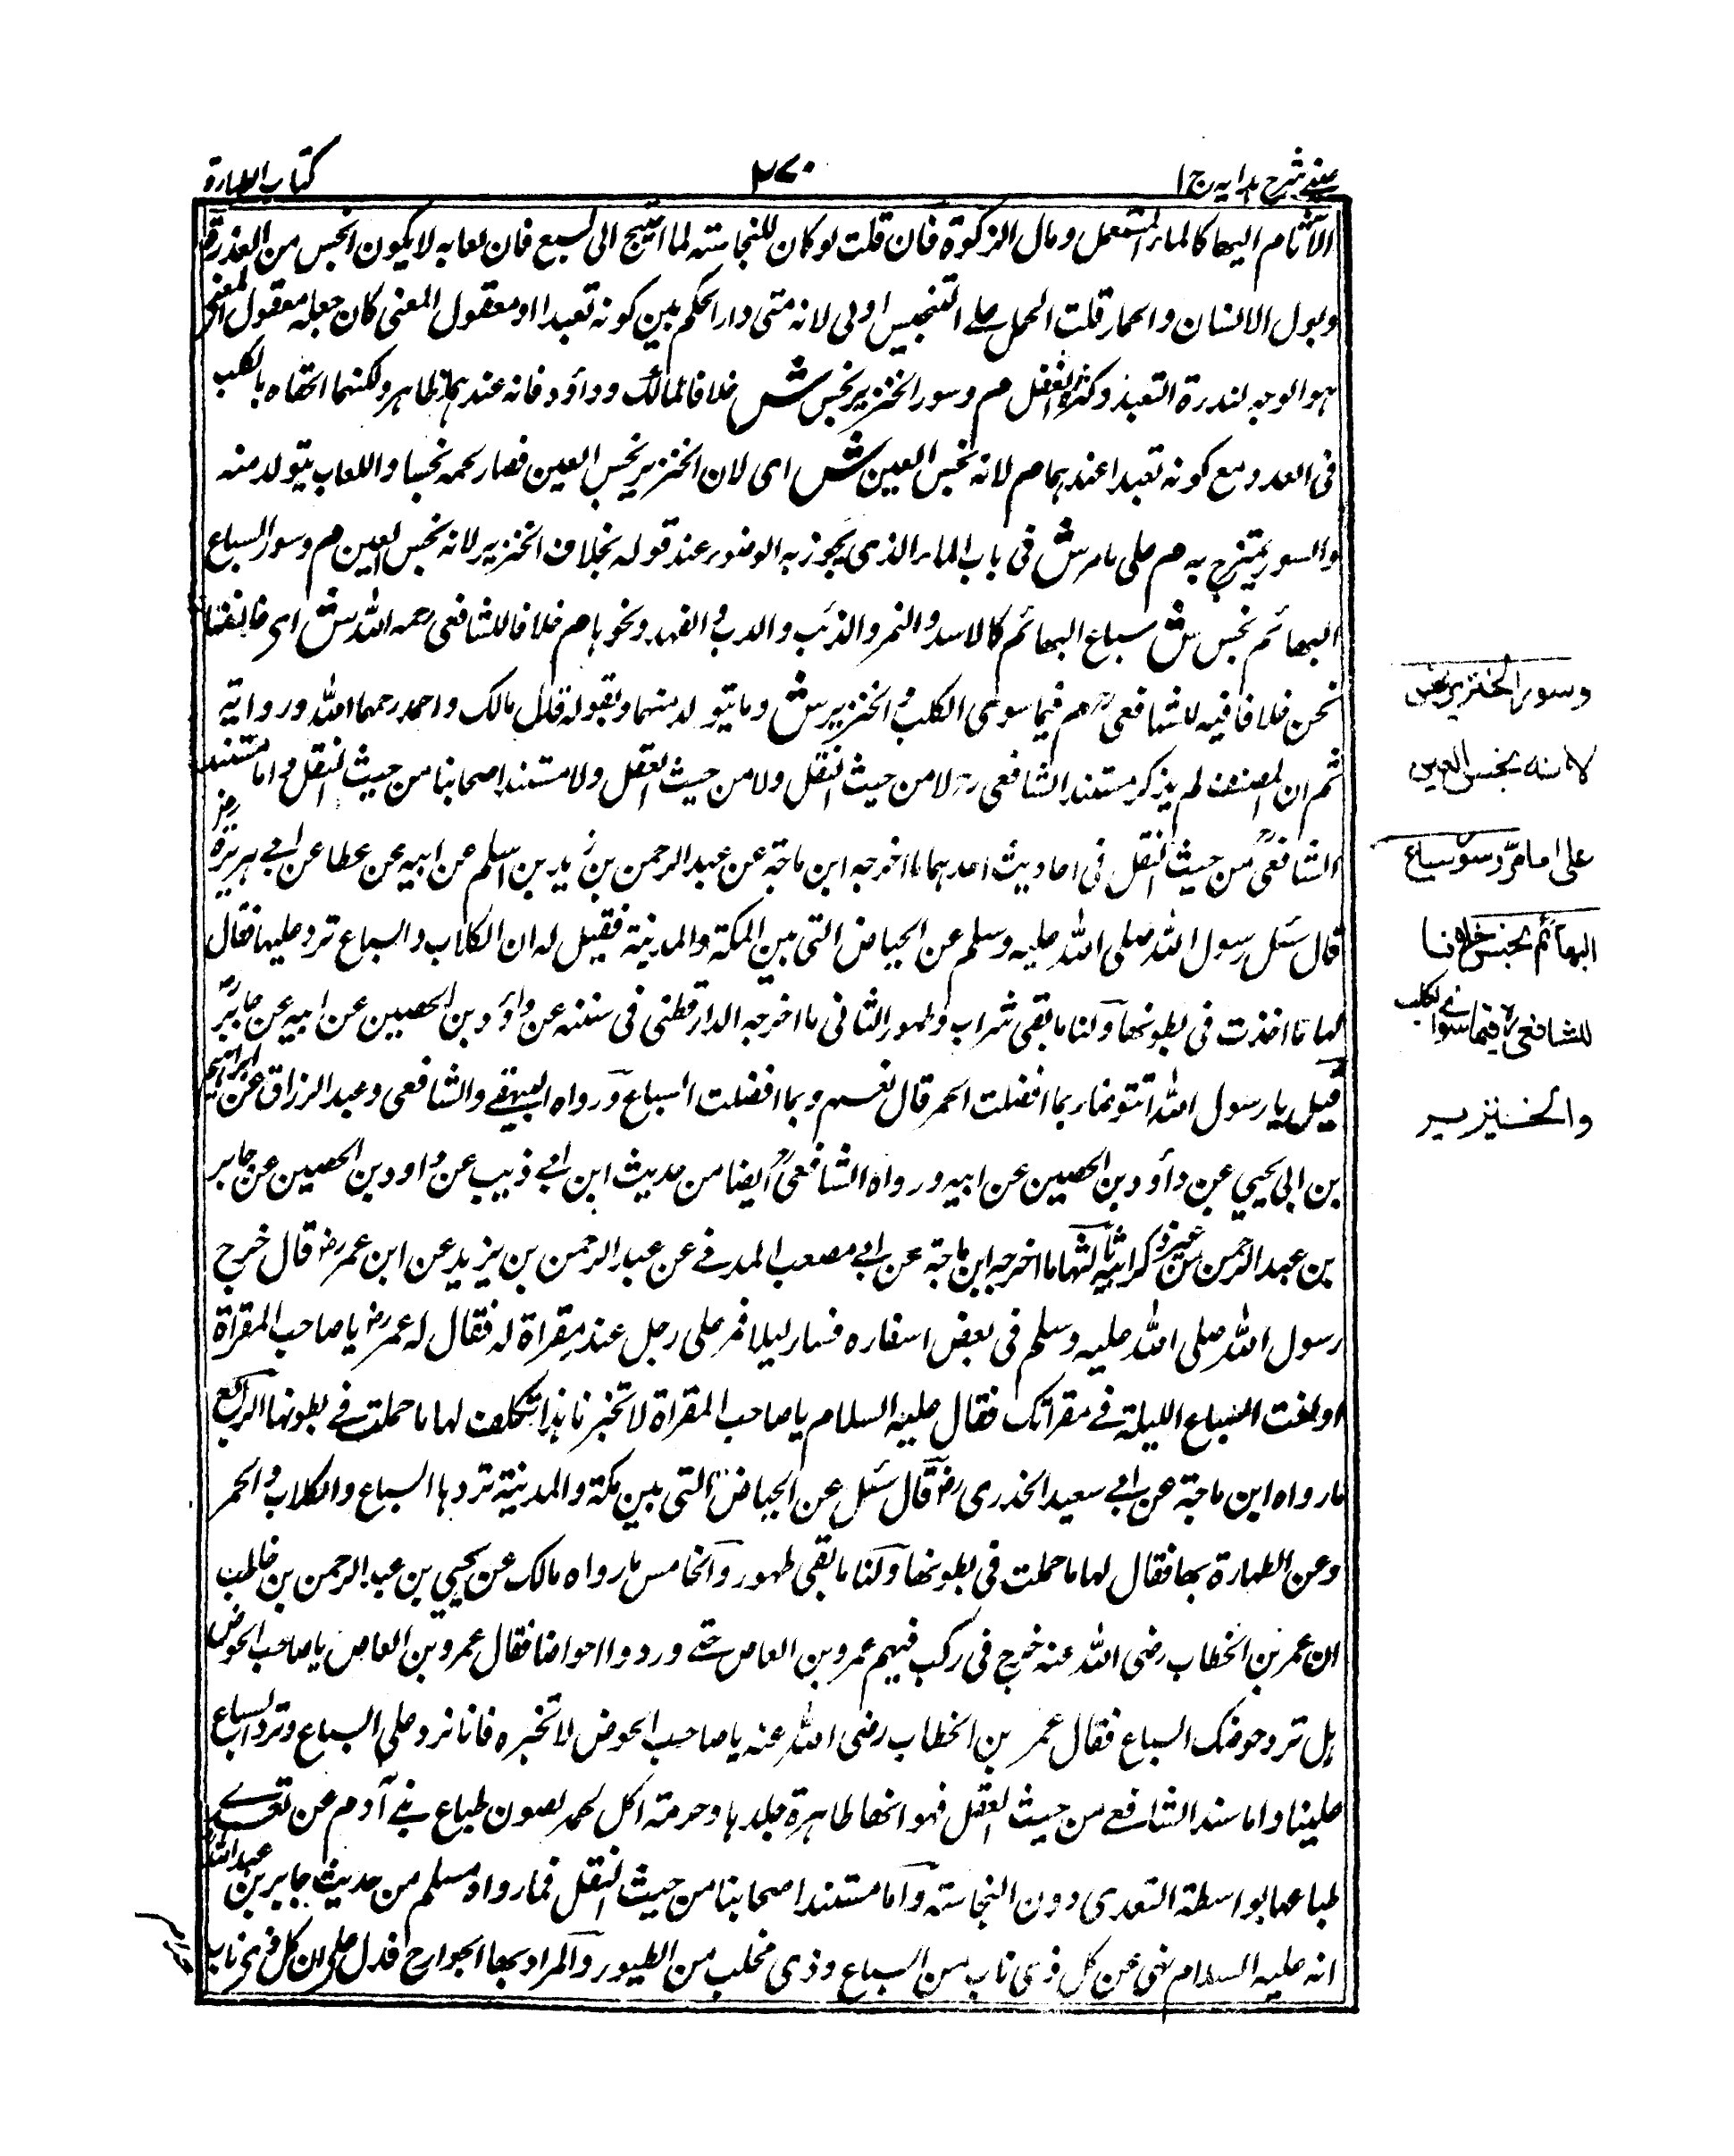 عینی شرح ہدایہ ج ۱
۲۷۰
کتاب الطہارة
الآثام الیها کالماء المستعمل ومال الزکوة فان قلت لو کان للنجاسته لما احتیج الی لسبع فان لعابه لا یکون انجس من العذرة
وبول الانسان والحمار قلت الحمل علی التنجیس اولی لانه متی دار الحکم بین کونه تعبدا او معقول المعنی کان جعله معقول المعنی
هو الوجه لندرة التعبد وکثرة التعقل م وسور الخنزیر نجس ش خلافا لمالک وداؤد فانه عندهما طاهر ولکنهما الحقاه بالکلب
فی العدد مع کونه تعبدا عندهما م لانه نجس العین ش ای لان الخنزیر نجس العین فصار لحمه نجسا واللعاب یتولد منه
والسور یمتزج به م علی ما مر ش فی باب الماء الذی یجوز به الوضوء عند قوله بخلاف الخنزیر لانه نجس العین م وسور السباع
البهائم نجس ش سباع البهائم کالاسد والنمر والذئب والدب والفهد ونحوها م خلافا للشافعی رحمه الله ش ای خالفنا
نحن خلافا فیه للشافعی رح م فیما سوی الکلب والخنزیر ش وما یتولد منهما وبقوله قال مالک واحمد رحمهما الله وروایة
ثم ان المصنف لم یذکر مستند الشافعی رح لا من حیث النقل ولا من حیث العقل ولا مستند اصحابنا من حیث النقل واما مستند
الشافعی رح من حیث النقل فی احادیث احدهما ما اخرجه ابن ماجة عن عبد الرحمن بن زید بن اسلم عن ابیه عن عطا عن ابی هریرة رض
قال سئل رسول الله صلی الله علیه وسلم عن الحیاض التی بین المکة والمدینة فقیل له ان الکلاب والسباع ترد علیها فقال
لها ما اخذت فی بطونها ولنا ما بقی شراب وطهور الثانی ما اخرجه الدارقطنی فی سننه عن داؤد بن الحصین عن ابیه عن جابر رض
قیل یا رسول الله اتتوضأ بما افضلت الحمر قال نعم وبما افضلت السباع ورواه البیهقی والشافعی وعبد الرزاق عن ابراهیم
بن ابی یحیی عن داؤد بن الحصین عن ابیه ورواه الشافعی رح ایضا من حدیث ابن ابی ذیب عن داود بن الحصین عن جابر
بن عبد الرحمن من غیر ذکر ابیه ثالثها ما اخرجه ابن ماجة عن ابی مصعب المدنی عن عبد الرحمن بن یزید عن ابن عمر رض قال خرج
رسول الله صلی الله علیه وسلم فی بعض اسفاره فسار لیلا فمر علی رجل عند مقراة له فقال له عمر رض یا صاحب المقراة
اولغت السباع اللیلة فی مقراتک فقال علیه السلام یا صاحب المقراة لا تخبرنا هذا تکلف لها ما حملت فی بطونها الرابع
ما رواه ابن ماجة عن ابی سعید الخدری رض قال سئل عن الحیاض التی بین مکة والمدینة تردها السباع والکلاب والحمر
وعن الطهارة بها فقال لها ما حملت فی بطونها ولنا ما بقی طهور والخامس ما رواه مالک عن یحیی بن عبد الرحمن بن حاطب
ان عمر بن الخطاب رضی الله عنه خرج فی رکب فیهم عمرو بن العاص حتی وردوا احواضا فقال عمرو بن العاص یا صاحب الحوض
هل ترد حوضک السباع فقال عمر بن الخطاب رضی الله عنه یا صاحب الحوض لا تخبره فانا نرد علی السباع وترد السباع
علینا واما سند الشافعی من حیث العقل فهو انها طاهرة جلدها وحرمة اکل لحمه لصون طباع بنی آدم عن تعدی
طباعها بواسطة التعدی دون النجاسته واما مستند اصحابنا من حیث النقل فما رواه مسلم من حدیث جابر بن عبد الله
انه علیه السلام نهی عن کل ذی ناب من السباع وذی مخلب من الطیور والمراد بها الجوارح فدل علی ان کل ذی ناب
وسور الخنزیر نجس
لانه نجس العین
علی ما مر وسور سباع
البهائم نجس خلافا
للشافعی رح فیما سوی الکلب
والخنزیر